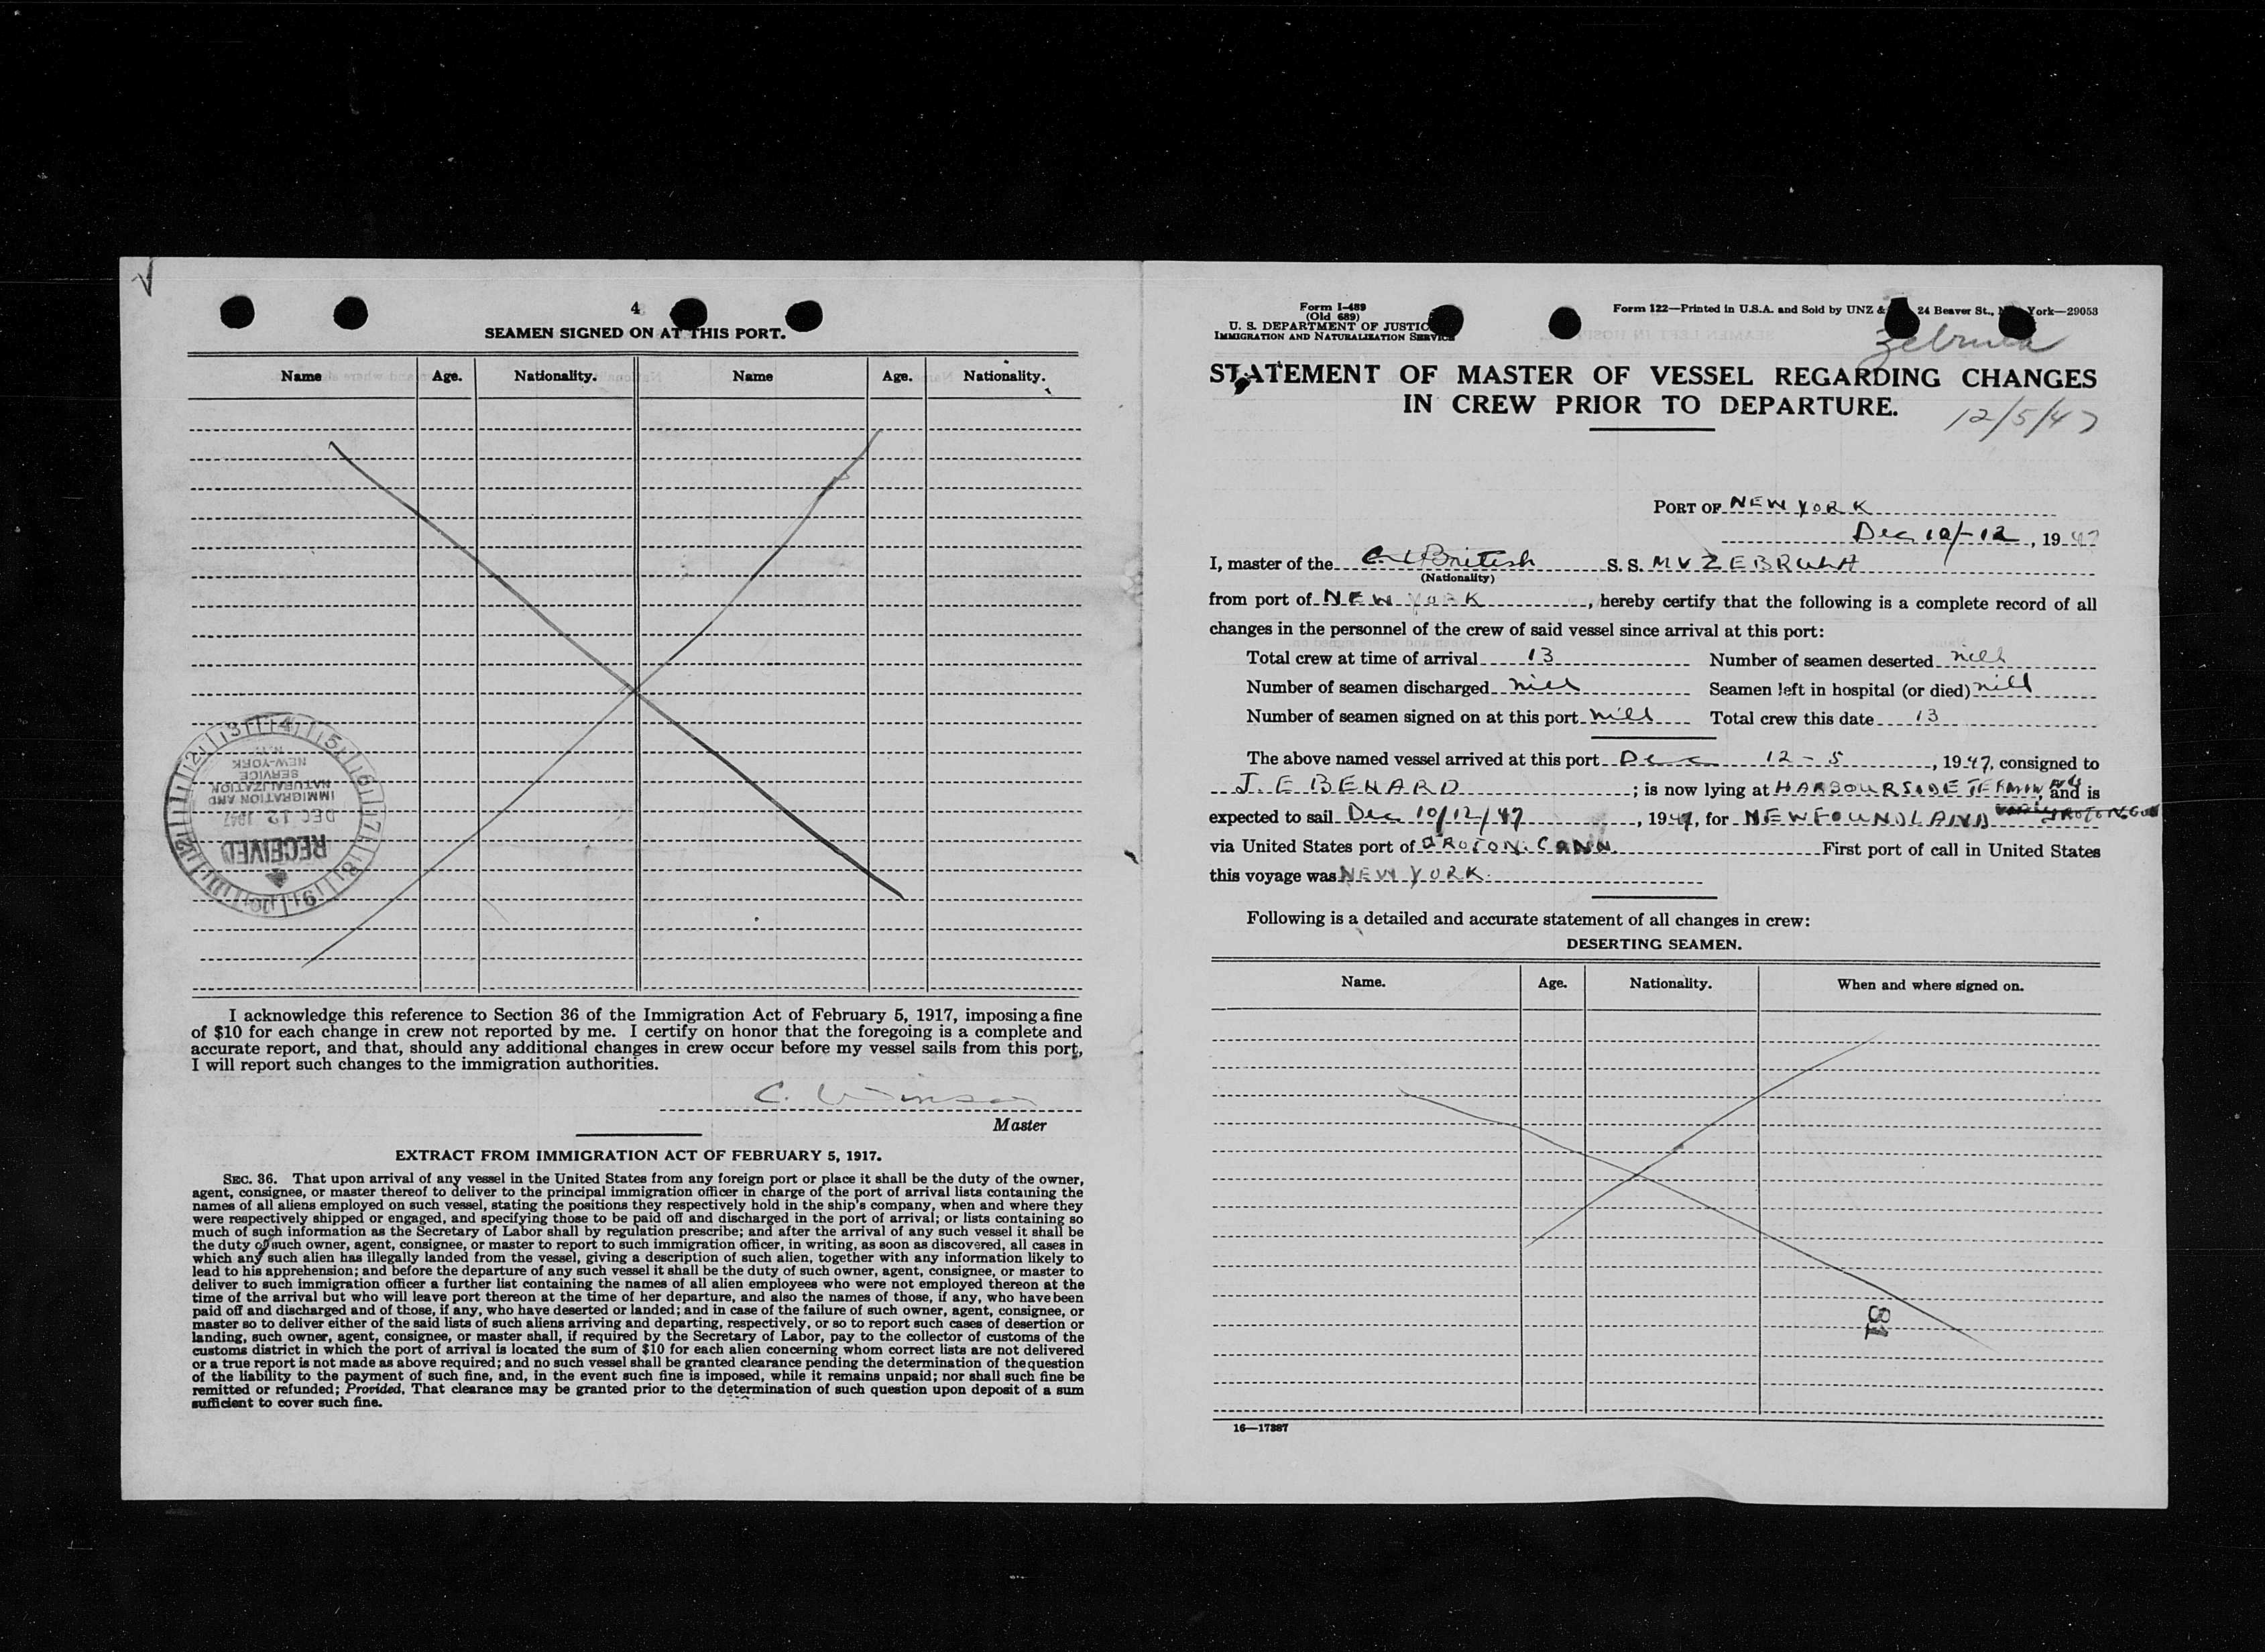 4
SEAMEN SIGNED ON AT THIS PORT.
Name Age. Nationality. Name Age. Nationality.
3 4 5 6 7 8 9 10 11 12 2
N.Y.
NEW-YORK
SERVICE
NATURALIZATION
IMMIGRATION AND
DEC 12 1947
RECEIVED
I acknowledge this reference to Section 36 of the Immigration Act of February 5, 1917, imposing a fine
of $10 for each change in crew not reported by me. I certify on honor that the foregoing is a complete and
accurate report, and that, should any additional changes in crew occur before my vessel sails from this port,
I will report such changes to the immigration authorities.
C. Winsor
Master
EXTRACT FROM IMMIGRATION ACT OF FEBRUARY 5, 1917.
SEC. 36. That upon arrival of any vessel in the United States from any foreign port or place it shall be the duty of the owner,
agent, consignee, or master thereof to deliver to the principal immigration officer in charge of the port of arrival lists containing the
names of all aliens employed on such vessel, stating the positions they respectively hold in the ship's company, when and where they
were respectively shipped or engaged, and specifying those to be paid off and discharged in the port of arrival; or lists containing so
much of such information as the Secretary of Labor shall by regulation prescribe; and after the arrival of any such vessel it shall be
the duty of such owner, agent, consignee, or master to report to such immigration officer, in writing, as soon as discovered, all cases in
which any such alien has illegally landed from the vessel, giving a description of such alien, together with any information likely to
lead to his apprehension; and before the departure of any such vessel it shall be the duty of such owner, agent, consignee, or master to
deliver to such immigration officer a further list containing the names of all alien employees who were not employed thereon at the
time of the arrival but who will leave port thereon at the time of her departure, and also the names of those, if any, who have been
paid off and discharged and of those, if any, who have deserted or landed; and in case of the failure of such owner, agent, consignee, or
master so to deliver either of the said lists of such aliens arriving and departing, respectively, or so to report such cases of desertion or
landing, such owner, agent, consignee, or master shall, if required by the Secretary of Labor, pay to the collector of customs of the
customs district in which the port of arrival is located the sum of $10 for each alien concerning whom correct lists are not delivered
or a true report is not made as above required; and no such vessel shall be granted clearance pending the determination of the question
of the liability to the payment of such fine, and, in the event such fine is imposed, while it remains unpaid; nor shall such fine be
remitted or refunded; Provided, That clearance may be granted prior to the determination of such question upon deposit of a sum
sufficient to cover such fine.
Form I-489
(Old 689)
U. S. DEPARTMENT OF JUSTIC
IMMIGRATION AND NATURALIZATION SERVICE
Form 122—Printed in U.S.A. and Sold by UNZ & 24 Beaver St., N York—29053
Zebrula
STATEMENT OF MASTER OF VESSEL REGARDING CHANGES
IN CREW PRIOR TO DEPARTURE.
12/5/47
PORT OF NEW YORK
Dec 10/-12, 1947
I, master of the British S. S. MV ZEBRULA
(Nationality)
from port of NEW YORK, hereby certify that the following is a complete record of all
changes in the personnel of the crew of said vessel since arrival at this port:
Total crew at time of arrival 13 Number of seamen deserted nill
Number of seamen discharged nill Seamen left in hospital (or died) nill
Number of seamen signed on at this port nill Total crew this date 13
The above named vessel arrived at this port Dec 12-5, 1947, consigned to
J. E BENARD; is now lying at HARBOURSIDE TERMIN, and is
expected to sail Dec 10/12/47, 1947, for NEWFOUNDLAND
via United States port of GROTON. CONN. First port of call in United States
this voyage was NEW YORK.
Following is a detailed and accurate statement of all changes in crew:
DESERTING SEAMEN.
Name. Age. Nationality. When and where signed on.
81
16—17387